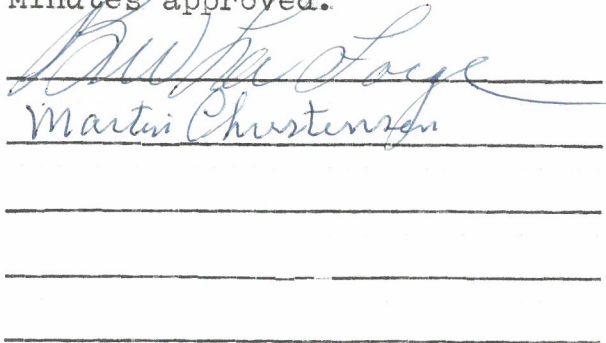 Minutes approved.
BW La Forge
Martin Christensen